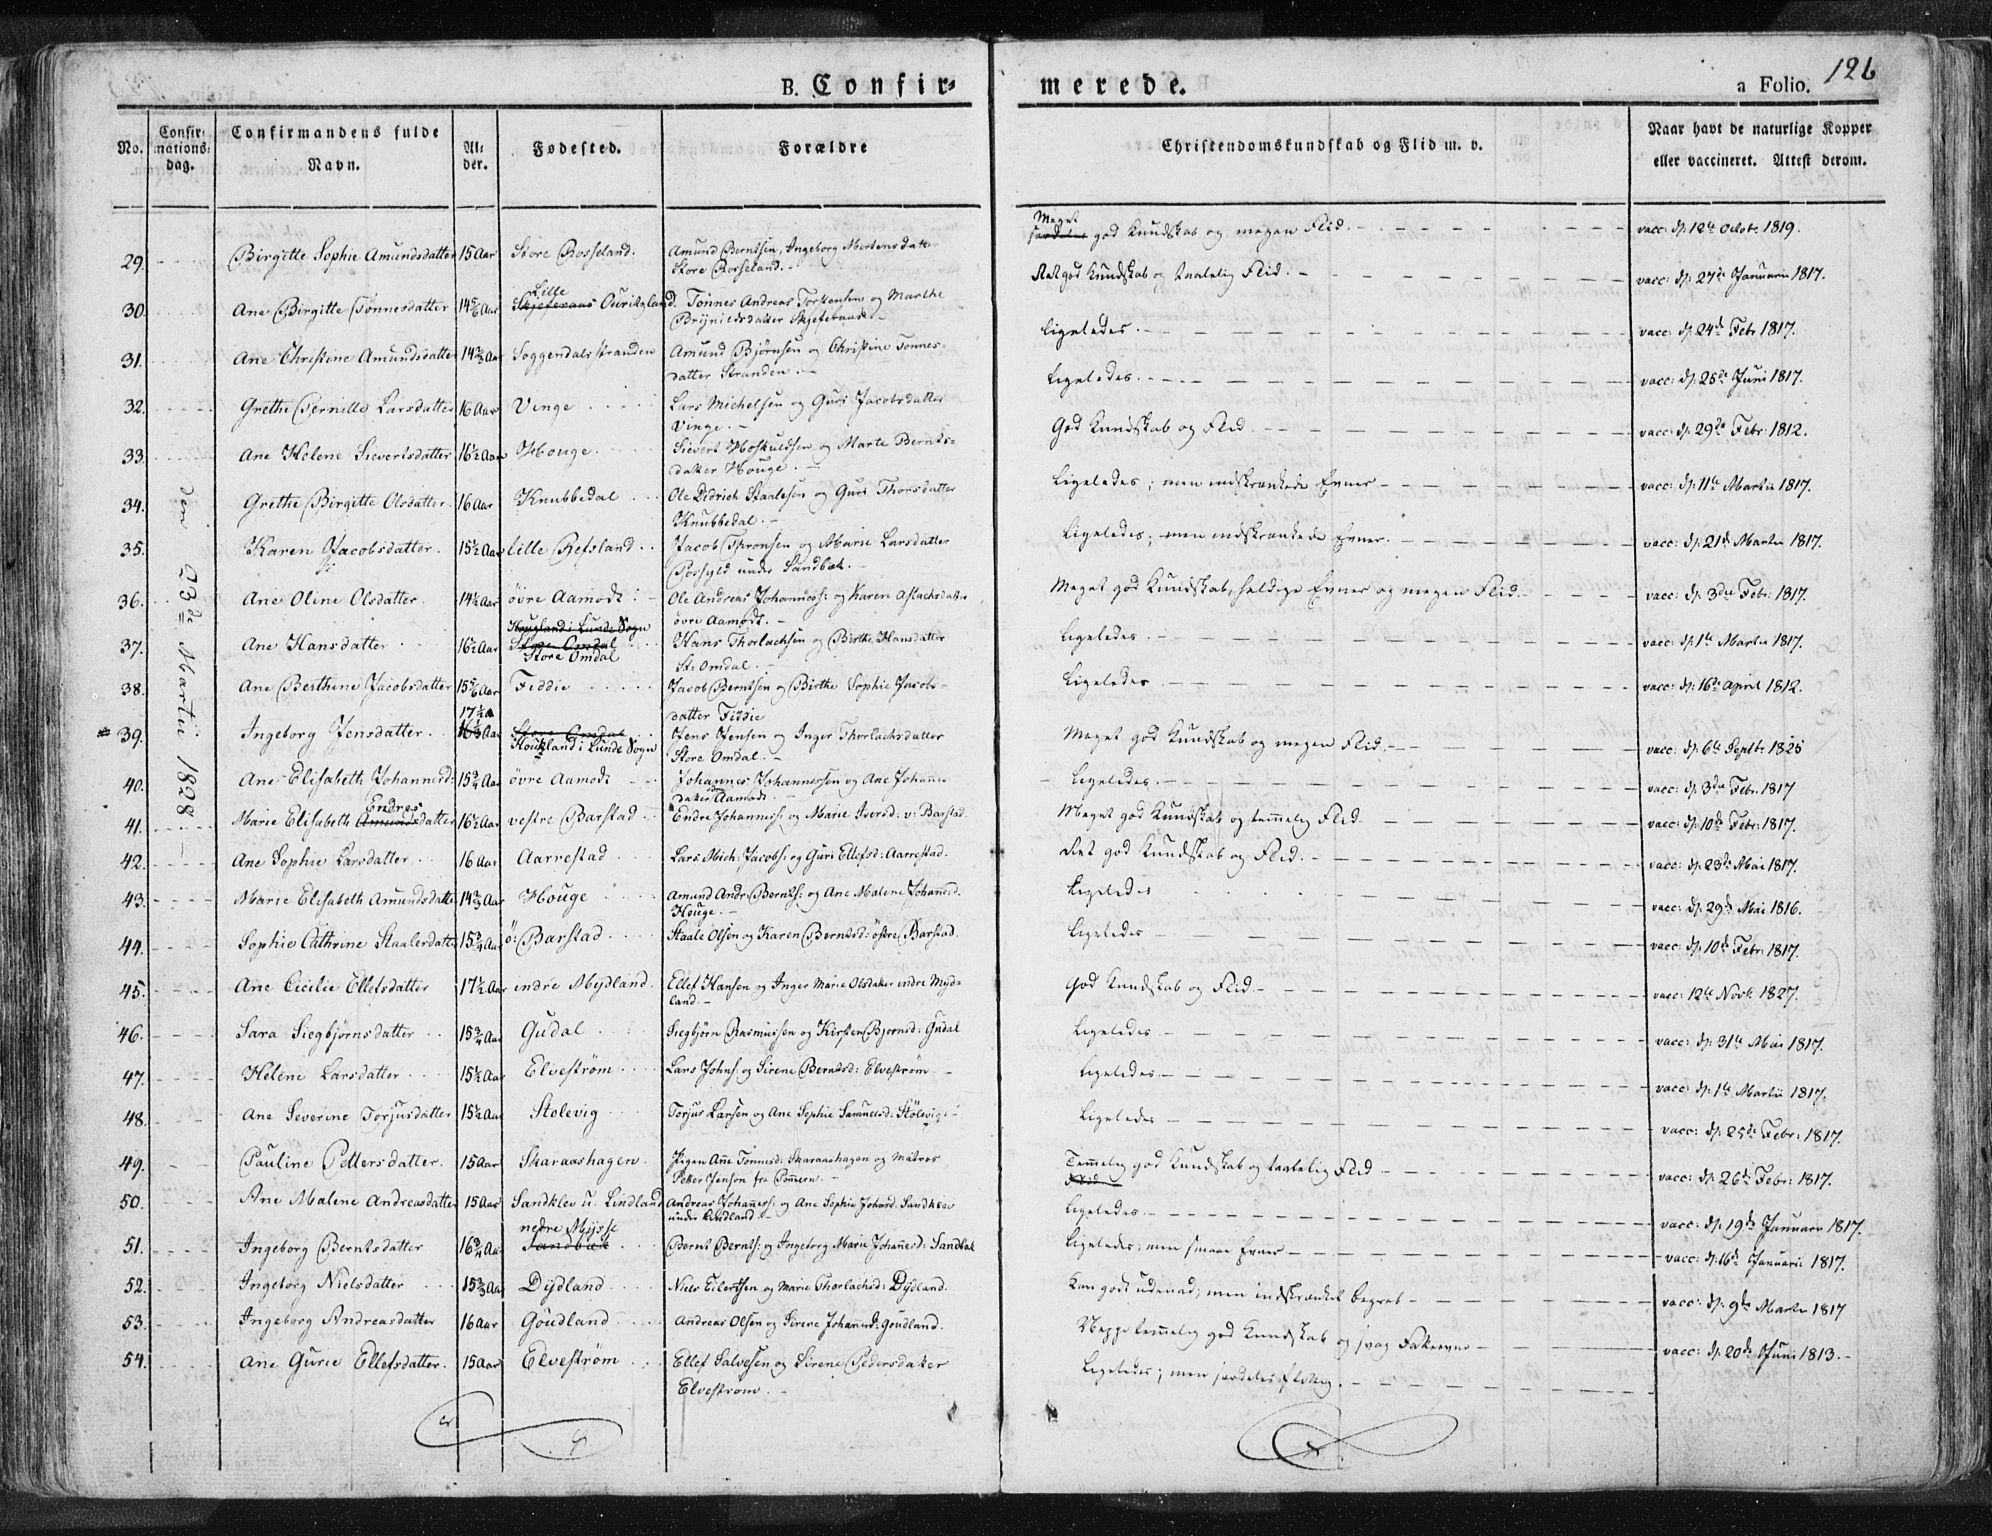 B. Confir-
merede.
a Folio. 126
No.
Confir-
mations-
dag.
Confirmandens fulde
Navn.
Al-
der.
Fødested.
Forældre
Christendomskundskab og Flid m. v.
Naar havt de naturlige Kopper
eller vaccineret. Attest derom.
den 23de Martii 1828.
29. Birgitte Sophie Amundsdatter 15 Aar Store Rosseland. Amund Berntsen, Ingeborg Mortensdatter
Store Rosseland.
Meget
god Kundskab og megen Flid. vacc: d: 12te Octobr. 1819.
30. Ane Birgitte Tønnesdatter 14 5/6 Aar Lille
Skjeferaas Ouritzland. Tønnes Andreas Torstensen og Marthe
Brynildsdatter Skjeferaas
Ret god Kundskab og taalelig Flid. vacc: d: 27de Januarii 1817.
31. Ane Christine Amundsdatter 14 2/3 Aar Soggendalsstranden Amund Bjørnsen og Christine Tønnes-
datter Stranden.
Ligeledes. vacc: d: 24de Febr 1817.
32. Grethe Pernille Larsdatter 16 Aar Vinge Lars Michelsen og Guri Jacobsdatter
Vinge.
Ligeledes. vacc: d: 25de Juni 1817.
33. Ane Helene Sievertsdatter 16 1/2 Aar Houge. Sievert Hoskuldsen og Marte Bernts-
datter Houge.
God Kundskab og Flid vacc: d: 29de Febr. 1812.
34. Grethe Birgitte Olsdatter. 16 Aar Knubbedal Ole Didrich Staalesen og Guri Thorsdatter
Knubbedal.
Ligeledes; men indskrænkede Evner vacc: d: 11te Martii 1817.
35. Karen Jacobsdatter. 15 1/2 Aar lille Refsland Jacob Tjronsen og Marie Larsdatter
Rosfyld under Sandbæk.
Ligeledes; men indskrænkede Evner. vacc: d: 21de Martii 1817.
36. Ane Oline Olsdatter. 14 1/2 Aar øvre Aamodt Ole Andreas Johanness: og Karen Aslachsdatter
øvre Aamodt.
Meget god Kundskab, heldige Evner og megen Flid. vacc: d: 3die Febr: 1817.
37. Ane Hansdatter 16 1/2 Aar Hougland i Lunde Sogn
Store Omdal
Store Omdal Hans Thorlachsen og Birthe Hansdatter
St: Omdal.
Ligeledes. vacc: d: 1te Martii 1817.
38. Ane Berthine Jacobsdatter 15 5/6 Aar Fiddie Jacob Berntsen og Birthe Sophie Jacobs-
datter Fiddie
Ligeledes vacc: d: 16de April 1812.
39. Ingeborg Jensdatter. 17 1/2 A
16 1/3 Aar Store Omdal
Houkland i Lunde Sogn Jens Jensen og Inger Thorlachsdatter
Store Omdal.
Meget god Kundskab og megen Flid. vacc: d: 6te Septbr 1825
40. Ane Elisabeth Johannesd: 15 3/4 Aar øvre Aamodt Johannes Johannessen og Ane Johanes
datter Aamodt.
Ligeledes. vacc: d: 3die Febr. 1817
41. Marie Elisabeth Endres
Amundsdatter 16 1/2 Aar vestre Barstad Endre Johanness: og Marie Iversd: v: Barstad.
Meget god Kundskab og temmelig Flid vacc: d: 10de Febr: 1817.
42. Ane Sophie Larsdatter 16 Aar Aarrestad Lars Mich: Jacobs: og Guri Ellefsd: Aarrestad.
Ret god Kundskab og Flid. vacc: d: 23de Mai 1817.
43. Marie Elisabeth Amundsdatter 14 2/3 Aar Houge Amund Andr: Bernts: og Ane Malene Johanesd.
Houge.
Ligeledes vacc: d: 29de Mai 1816.
44. Sophie Cathrine Staalesdatter 15 3/4 Aar ø: Barstad Staale Olsen og Karen Berntsd: østre Barstad.
Ligeledes vacc: d: 10de Febr: 1817.
45. Ane Cicilie Ellefsdatter 17 1/2 Aar indre Mydland. Ellef Hansen og Inger Marie Olsdatter indre Myd-
land.
God Kundskab og Flid. vacc: 12te Novb: 1827.
46. Sara Siegbjørnsdatter 15 3/4 Aar Gudal Siegbjørn Rasmussen og Kirsten Bjernsd: Gudal
Ligeledes vacc: d: 31te Mai 1817.
47. Helene Larsdatter 15 1/2 Aar Elvestrøm Lars Johns: og Sirene Berntsd: Elvestrøm
Ligeledes. vacc: d: 1te Martii 1817.
48. Ane Severine Torjusdatter 15 1/2 Aar Stolevig Torjus Larsen og Ane Sophie Samuelsd: Stølevig
Ligeledes vacc: d: 25de Febr: 1817.
49. Pauline Pettersdatter. 15 Aar Skaraashagen. Pigen Ane Tønnesd: Skaraashagen og Matros
Petter Jenson fra Pomern
Temmelig god Kundskab og taalelig Flid
Flid vacc: d: 26de Febr: 1817.
50. Ane Malene Andreasdatter 15 Aar Sandklev u. Lindland Andreas Johaness: og Ane Sophie Johnsd: Sandklev
under Lindland.
Ligeledes. vacc: d: 19de Januari 1817.
51. Ingeborg Berntsdatter 16 3/4 Aar nedre Mysse
Sandbæk Bernt Bernts: og Ingeborg Marie Johanesd: Sandbæk
Ligeledes; men smaae Evner vacc: d: 16de Januarii 1817.
52. Ingeborg Nielsdatter 15 2/3 Aar Dydland Niels Eilertsen og Marie Thorlachsd: Dydland.
Kan godt udenad; men indskrænket Begreb vacc: d: 9de Martii 1817
53. Ingeborg Andreasdatter 16 Aar Goudland Andreas Olsen og Sirene Johanesd: Goudland.
Neppe temmelig god Kundskab og svag Fatteevne vacc: d: 20de Juni 1813.
54. Ane Gurie Ellefsdatter. 15 Aar Elvestrøm Ellef Salvesen og Sirene Pedersdatter
Elvestrøm.
Ligeledes; men særdeles flittig.